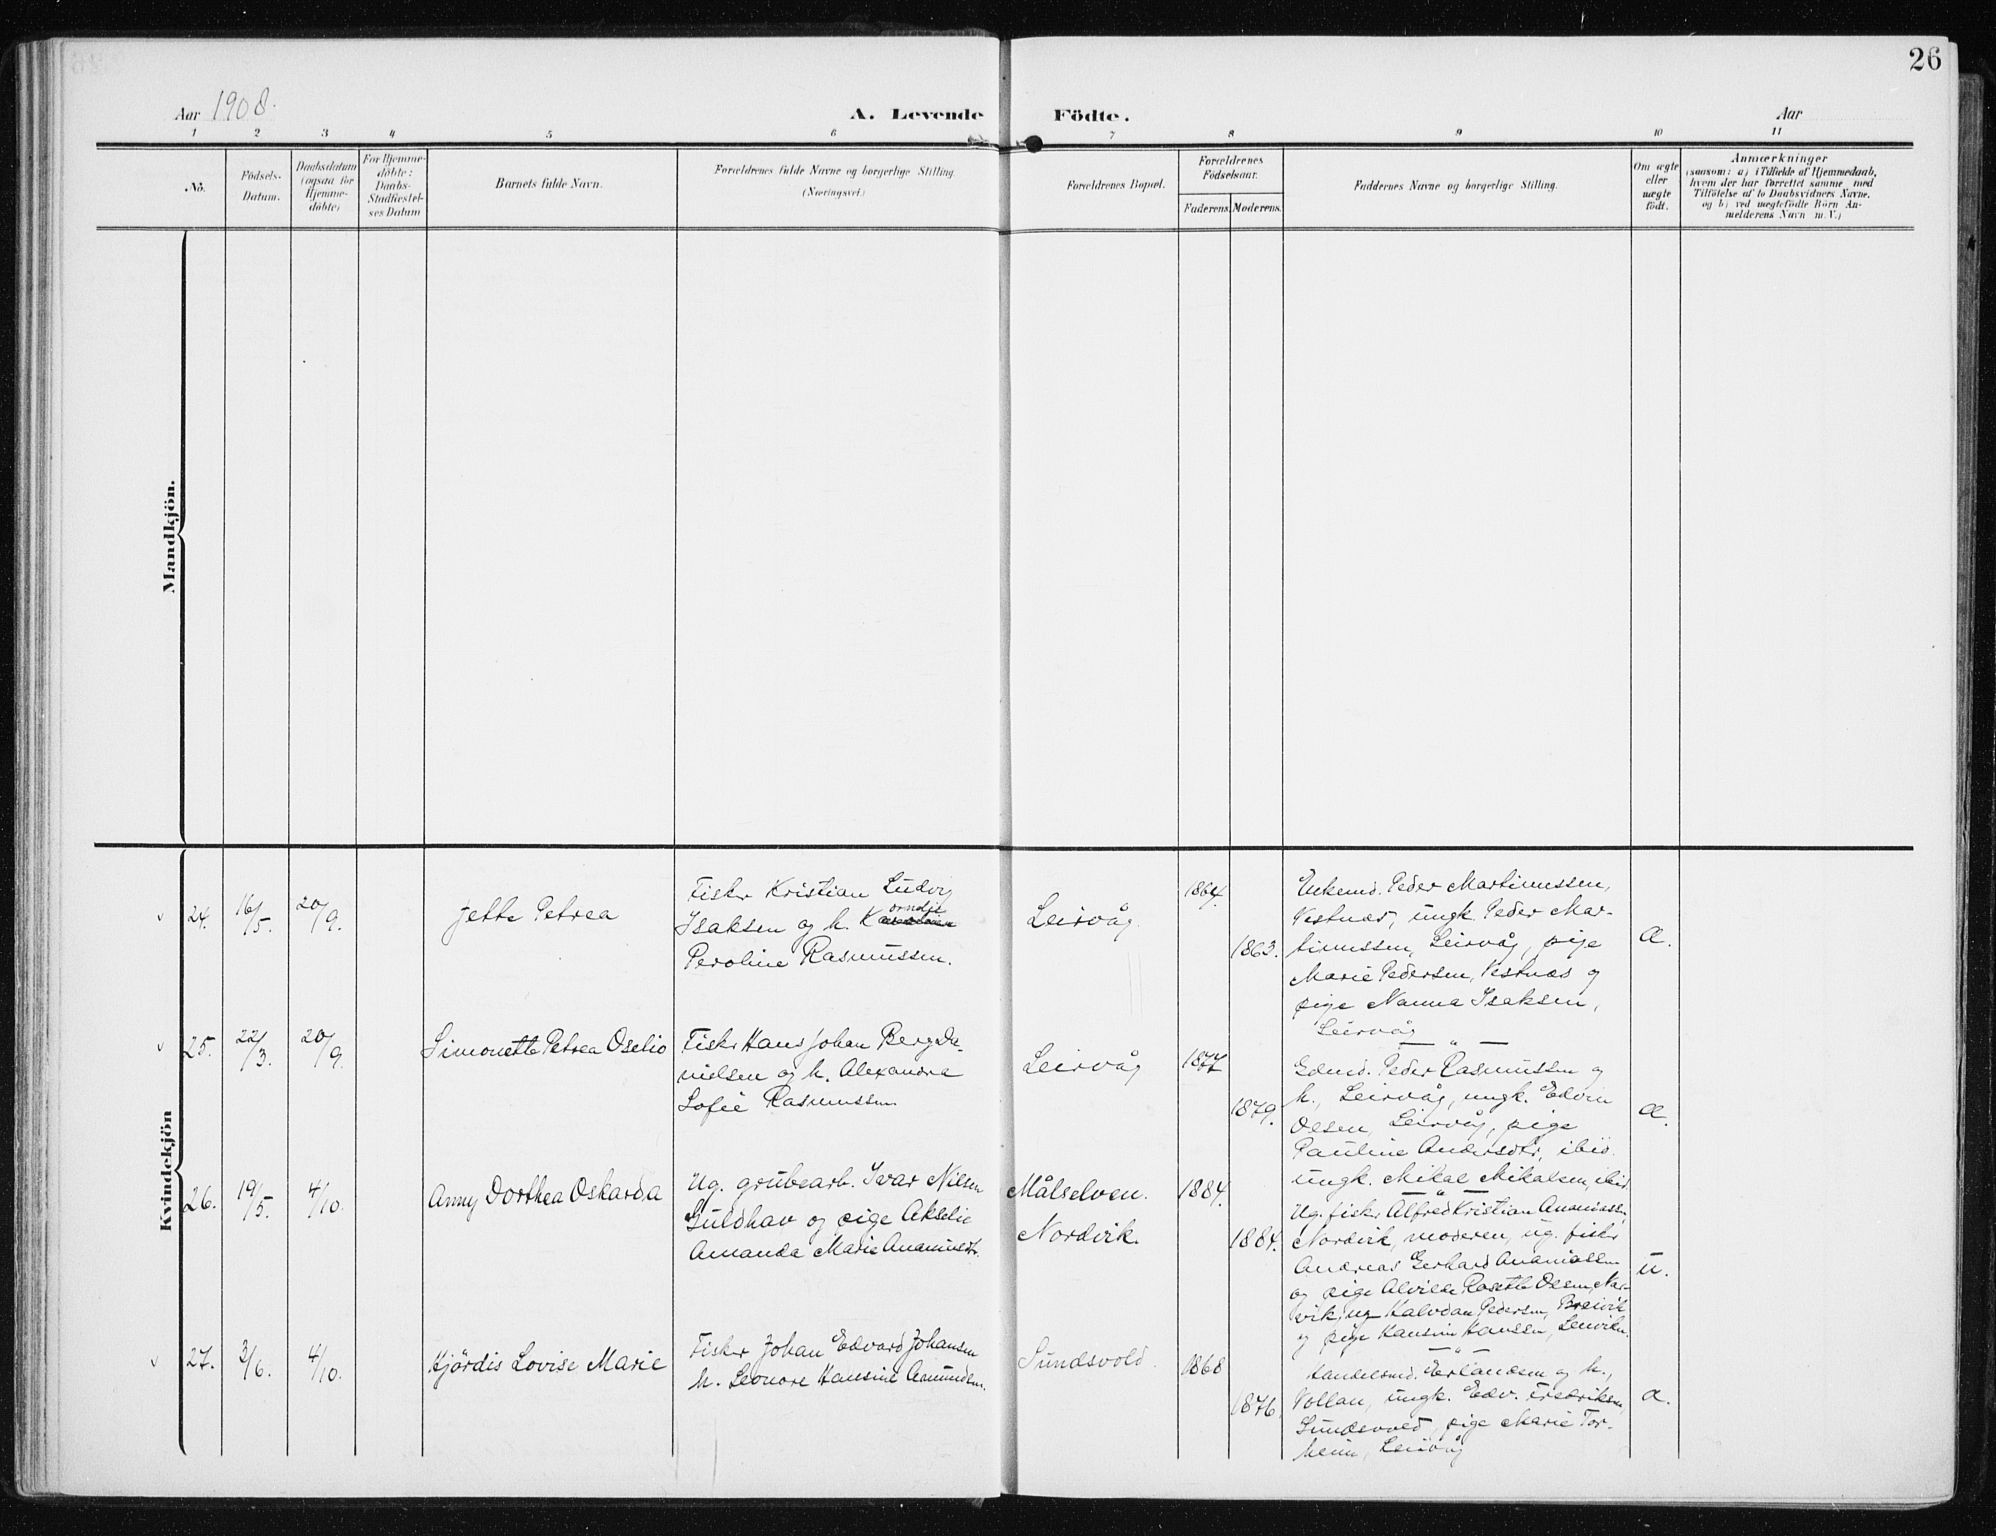 26
Aar 1908.
A. Levende Födte.
Aar
1 2 3 4 5 6 7 8 9 10 11
No.
Födsels-
Datum.
Daabsdatum
(ogsaa for
Hjemme-
döbte)
For Hjemme-
döbte:
Daabs-
Stadfæstel-
ses Datum
Barnets fulde Navn.
Forældrenes fulde Navne og borgerlige Stilling.
(Næringsvei.)
Forældrenes Bopæl.
Forældrenes
Födselsaar.
Faderens. Moderens.
Faddernes Navne og borgerlige Stilling.
Om ægte
eller
uægte
födt.
Anmærkninger
(saasom: a) i Tilfælde af Hjemmedaab,
hvem der har forrettet samme, med
Tilföielse af to Daabsvidners Navne.
og b) ved uægtefödte Börn An-
melderens Navn m. V.)
Mandkjön.
Kvindekjön
24.
16/5.
20/9.
Jette Petrea
Fisker Kristian Ludvig
Isaksen og h. Kornelie
Peroline Rasmussen.
Leirvåg.
1864.
1863.
Enkemd. Peder Martinussen,
Vestnæs, ungk. Peder Mar-
tinussen, Leirvåg, pige
Marie Pedersen, Vestnæs og
pige Nanna Isaksen,
Leirvåg
— " —
æ.
25.
22/3.
20/9.
Simonette Petrea Oselio
Fisker Hans Johan Berg Da-
nielsen og h. Alexandra
Sofie Rasmussen
Leirvåg
1877
1879.
Gdmd. Peder Rasmussen og
h., Leirvåg, ungk. Edvin
Olsen, Leirvåg, pige
Pauline Andersdtr, ibid.
ungk. Mikal Mikalsen, ibid.
— " —
æ.
26.
19/5.
4/10.
Anny Dorthea Oskarda
Ug. grubearb. Ivar Nilsen
Guldhav og pige Akselie
Amanda Marie Ananiasdtr.
Målselven.
Nordvik.
1884.
1884.
Ug. fisker Alfred Kristian Ananiassen,
Nordvik, moderen, ug. fisker
Andreas Gerhard Ananiassen
og pige Alvilde Rasette Olsen, Nor-
vik, ug Halvdan Pedersen, Breivik
og pige Hansine Hanssen, Lenvik.
— " —
u.
27.
3/6.
4/10.
Hjördis Lovise Marie
Fisker Johan Edvard Johansen
h. Leonore Hansine Amundsen.
Sundsvold.
1868
1876.
Handelsmd. Erlandsen og h.,
Vollan, ungk. Edv. Fredriksen,
Sundsvold, pige Marie Tor-
heim, Leirvåg
æ.